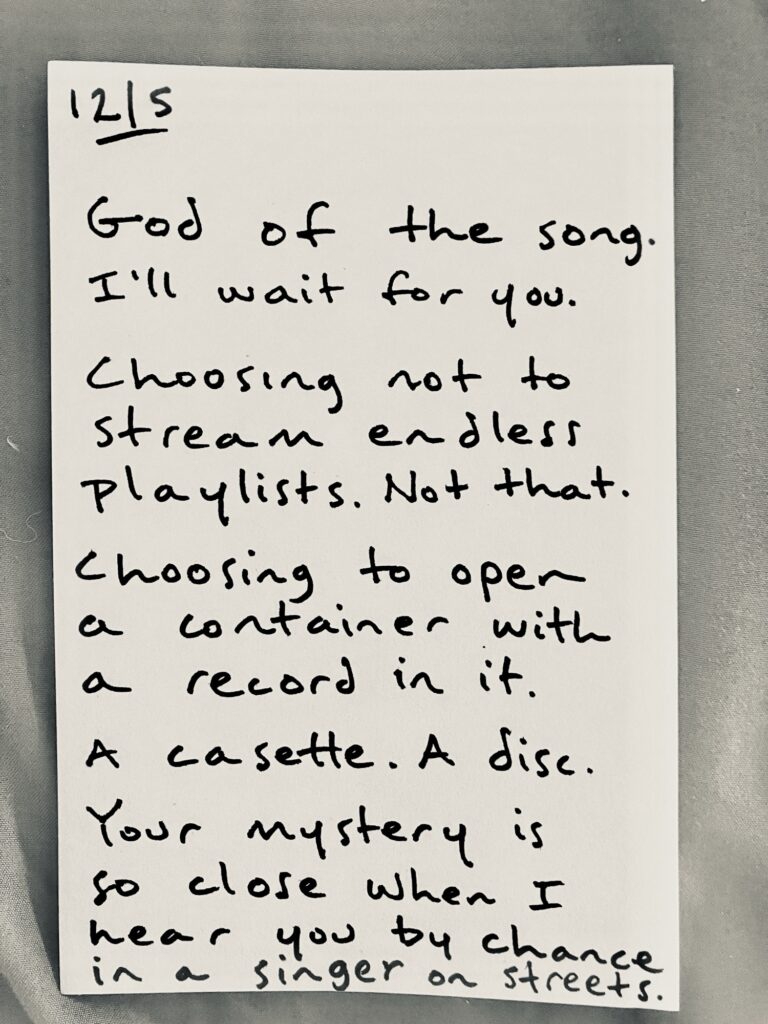 12/5
God of the song.
I'll wait for you.
Choosing not to
stream endless
playlists. Not that.
Choosing to open
a container with
a record in it.
A casette. A disc.
Your mystery is
so close when I
hear you by chance
in a singer on streets.